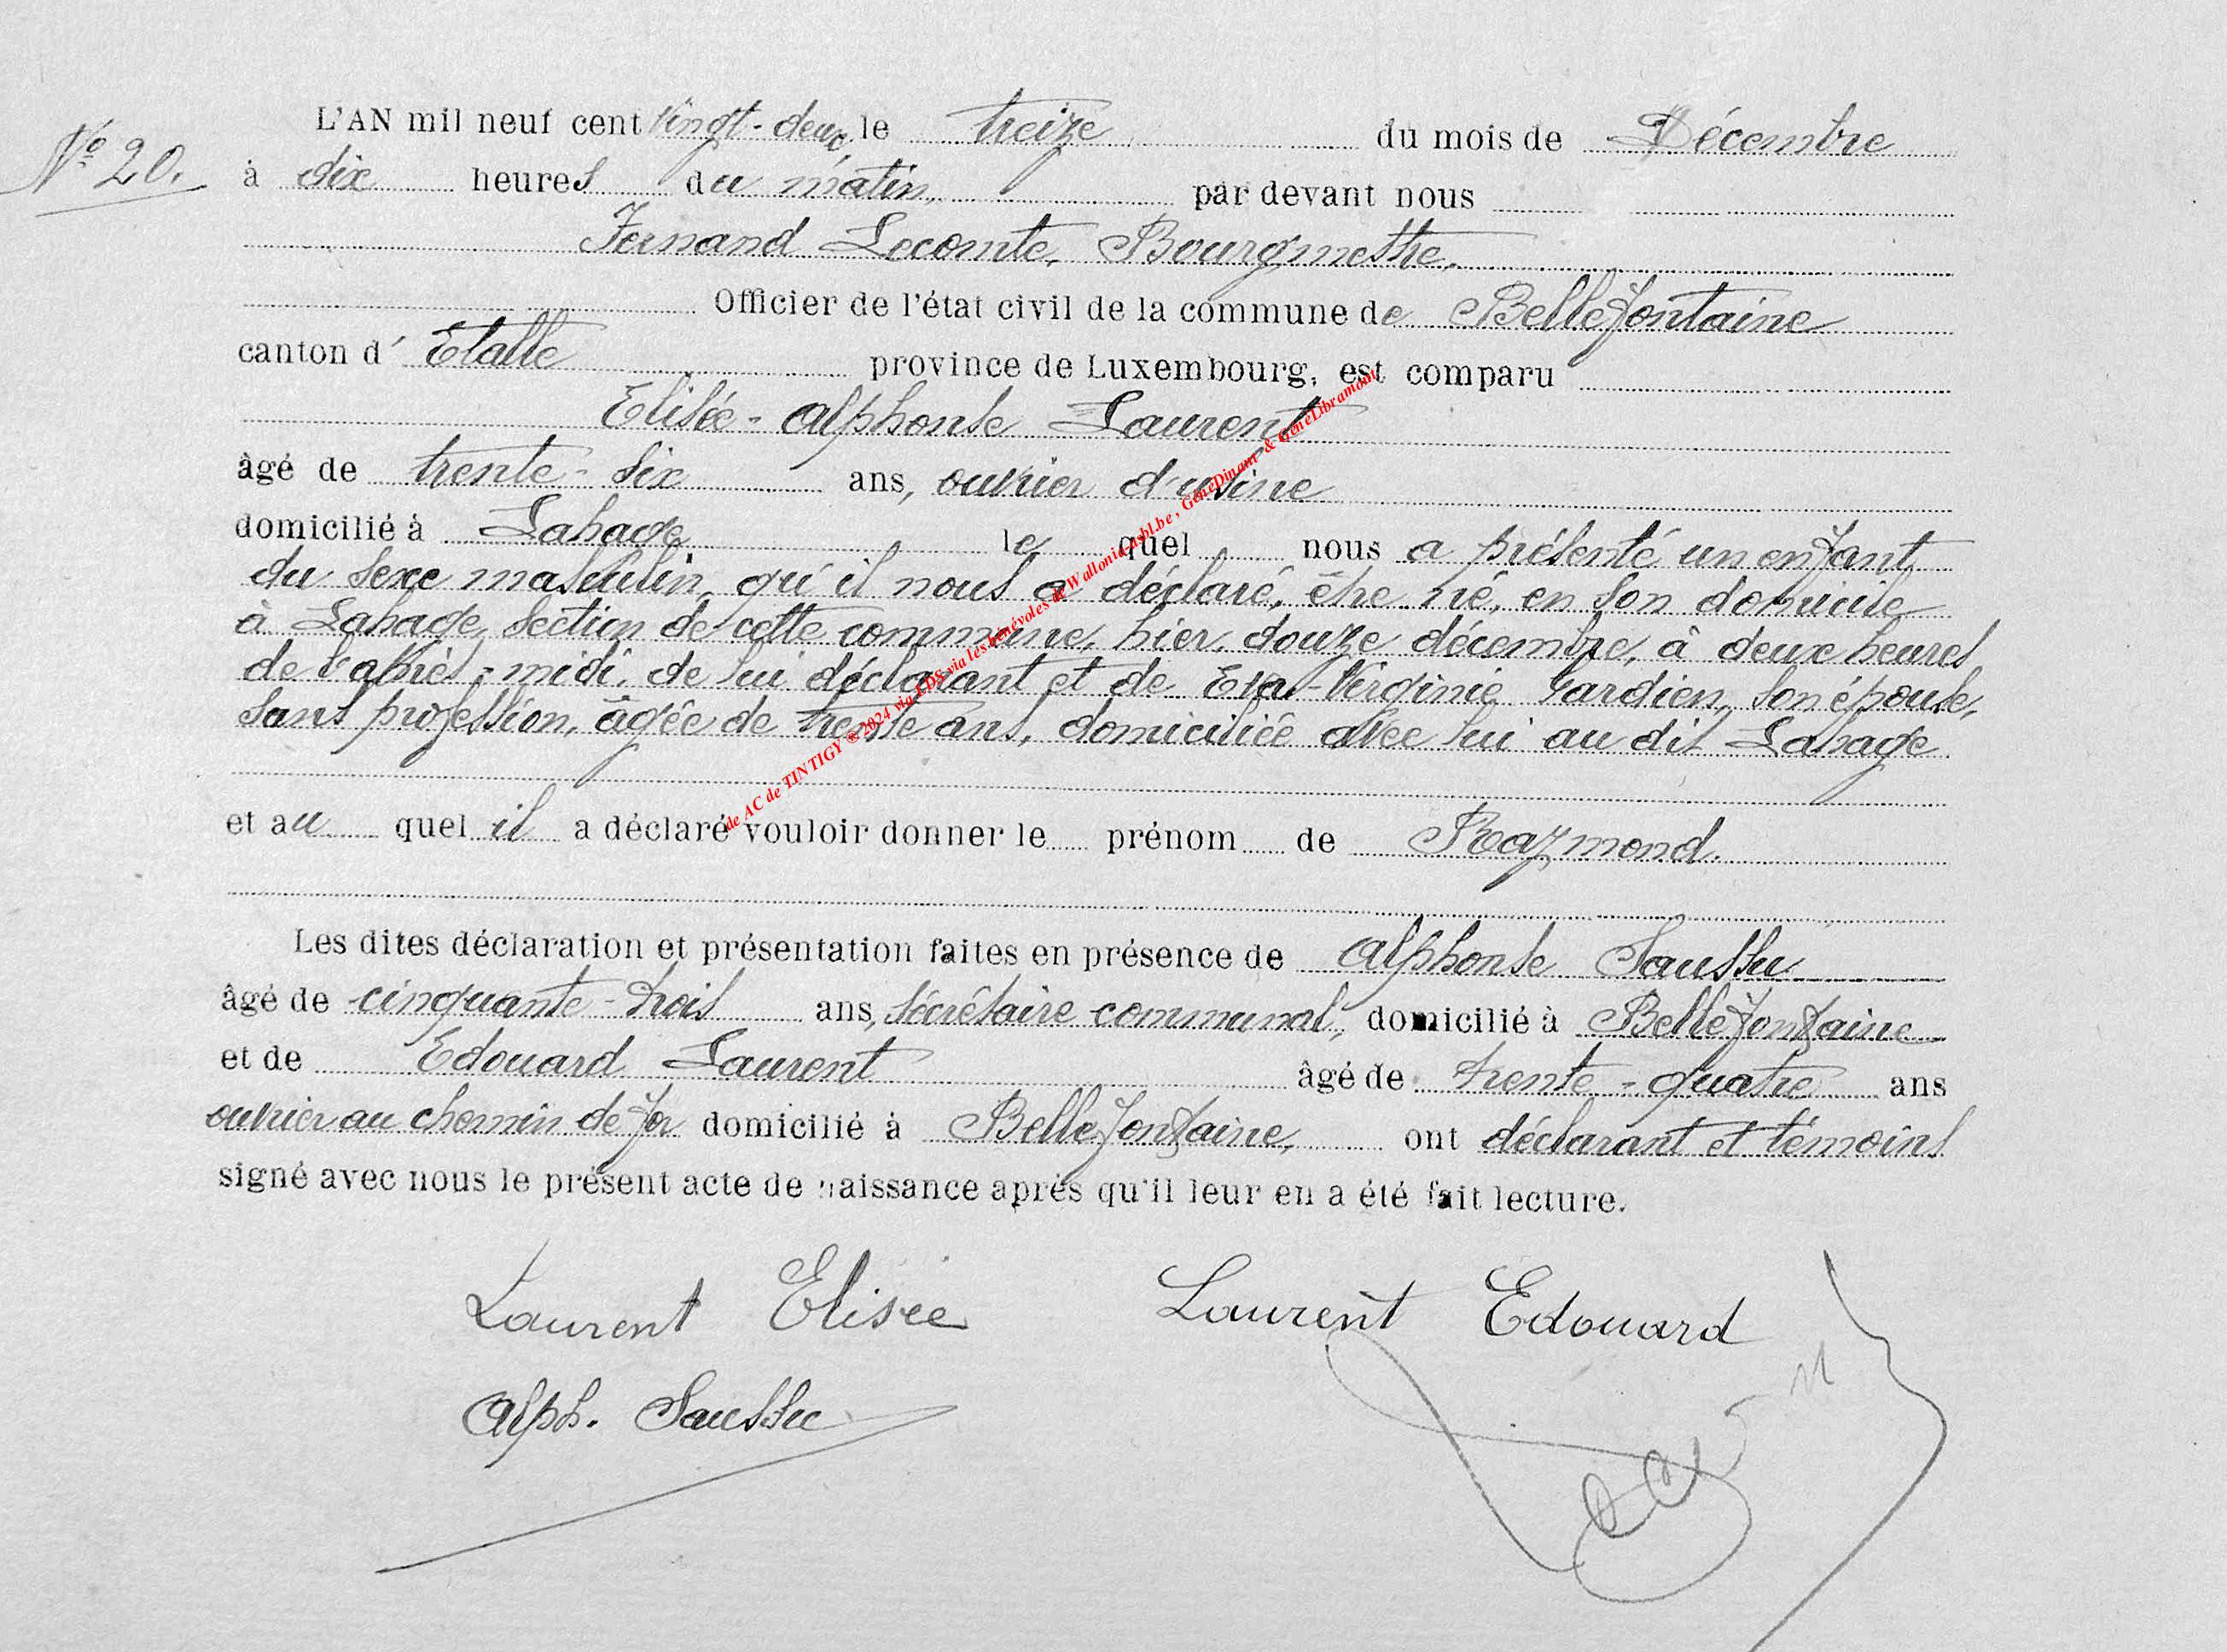 N° 20.
L'AN mil neuf cent vingt-deux, le treize du mois de Décembre
à dix heures du matin, par devant nous
Fernand Lecomte, Bourgmestre,
Officier de l'état civil de la commune de Bellefontaine
canton d' Etalle province de Luxembourg, est comparu
Elisée-Alphonse Laurent
âgé de trente-six ans, ouvrier d'usine
domicilié à Lahage le quel nous a présenté un enfant
du sexe masculin, qu'il nous a déclaré, être né, en son domicile
à Lahage, section de cette commune, hier, douze décembre, à deux heures
de l'après-midi, de lui déclarant et de Eva-Virginie Gardien, son épouse,
sans profession, âgée de trente ans, domiciliée avec lui au dit Lahage
et au quel il a déclaré vouloir donner le prénom de Raymond.
Les dites déclaration et présentation faites en présence de Alphonse Saussu
âgé de cinquante-trois ans, sécrétaire communal, domicilié à Bellefontaine
et de Edouard Laurent âgé de trente-quatre ans
ouvrier au chemin de fer domicilié à Bellefontaine, ont déclarant et témoins
signé avec nous le présent acte de naissance après qu'il leur en a été fait lecture.
Laurent Elisée Laurent Edouard
Alph. Saussu
de AC de TINTIGY ® 2024 via FDS via les bénévoles de Wallonia-asbl.be, GeneDinant & GeneLibramont